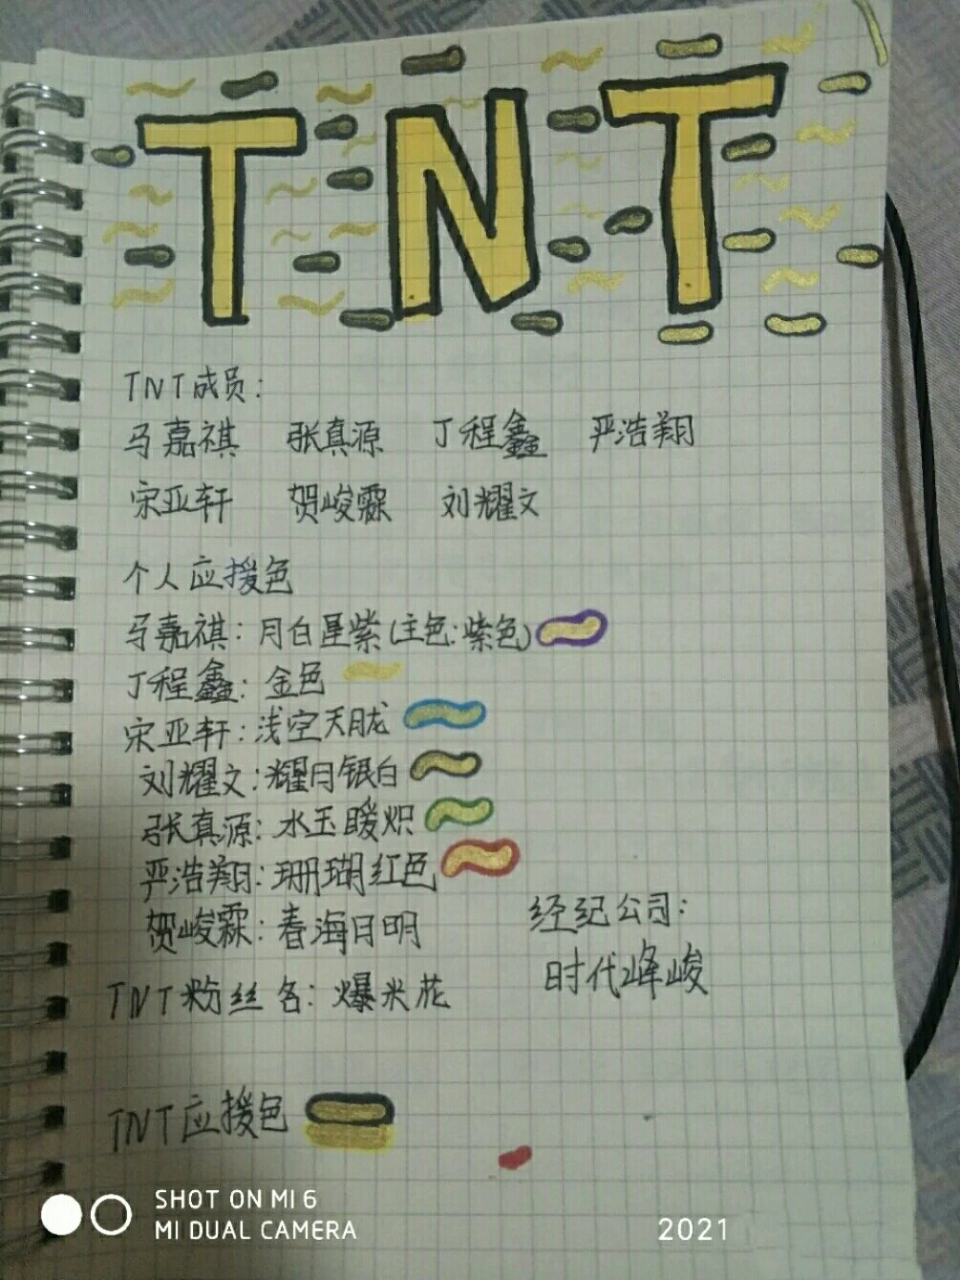 TNT
TNT成员:
马嘉祺 张真源 丁程鑫 严浩翔
宋亚轩 贺峻霖 刘耀文
个人应援色
马嘉祺:月白星紫(主色:紫色)
丁程鑫:金色
宋亚轩:浅空天胧
刘耀文:耀月银白
张真源:水玉暖炽
严浩翔:珊瑚红色
贺峻霖:春海日明
经纪公司:
时代峰峻
TNT粉丝名:爆米花
TNT应援色
SHOT ON MI 6
MI DUAL CAMERA
2021